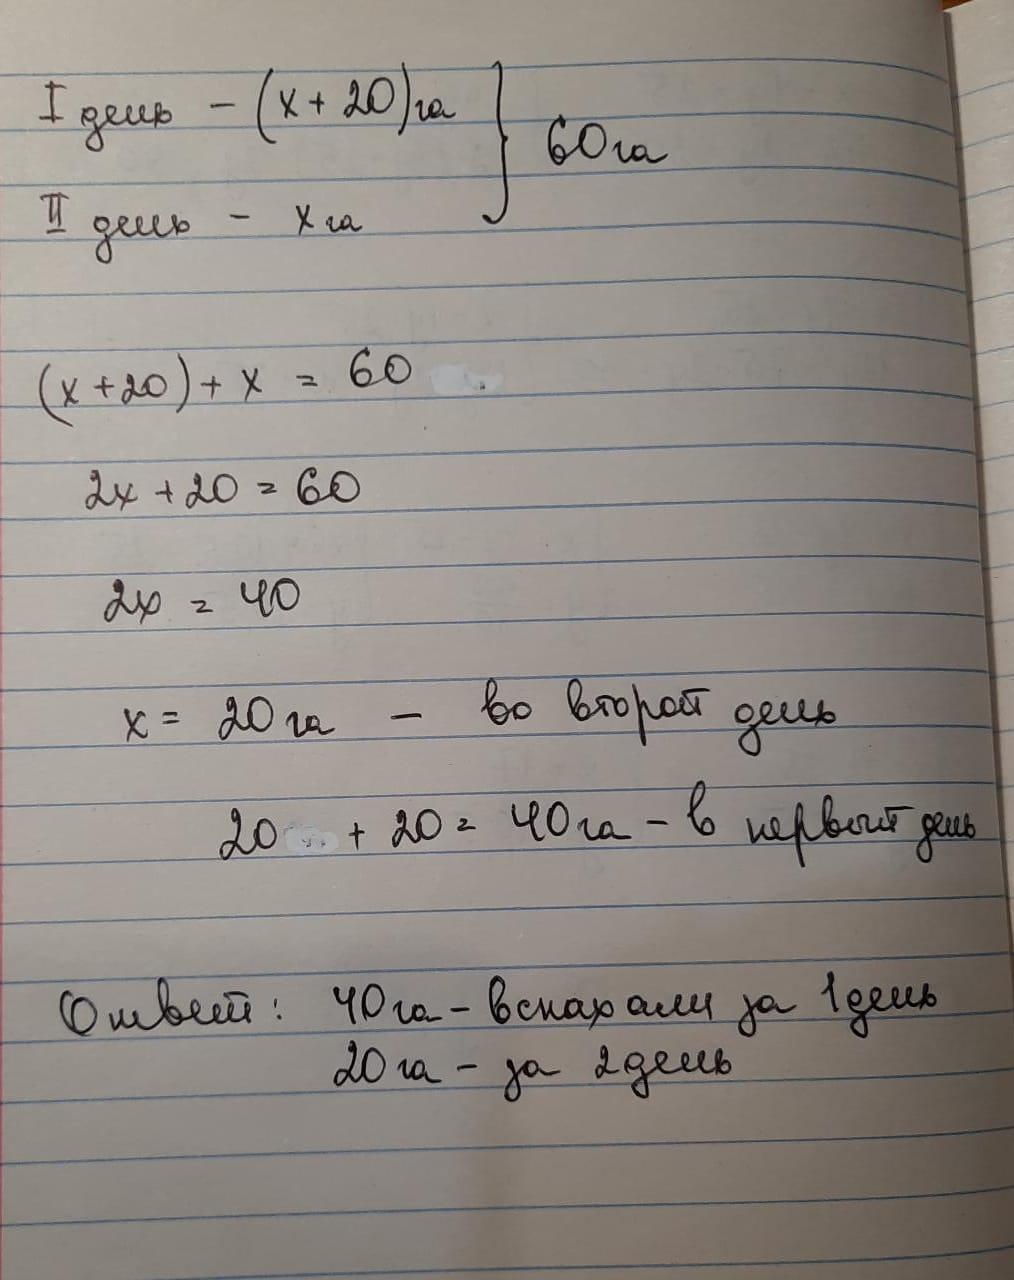 I день - (x + 20) га } 60 га
II день - x га
(x + 20) + x = 60
2x + 20 = 60
2x = 40
x = 20 га - во второй день
20 + 20 = 40 га - в первый день
Ответ: 40 га - вспахали за 1 день
20 га - за 2 день